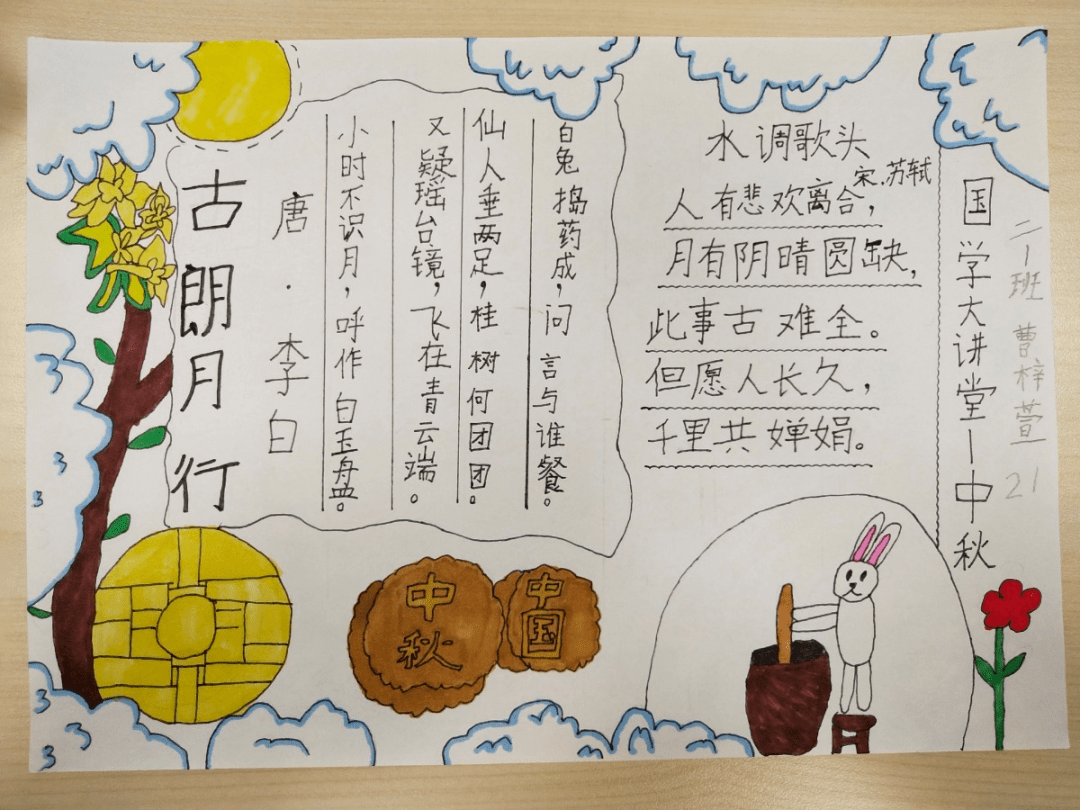 古朗月行
唐·李白
小时不识月，呼作白玉盘。
又疑瑶台镜，飞在青云端。
仙人垂两足，桂树何团团。
白兔捣药成，问言与谁餐。
水调歌头
宋.苏轼
人有悲欢离合，
月有阴晴圆缺，
此事古难全。
但愿人长久，
千里共婵娟。
国学大讲堂—中秋
二一班 曹梓萱 21
中
秋
中
国